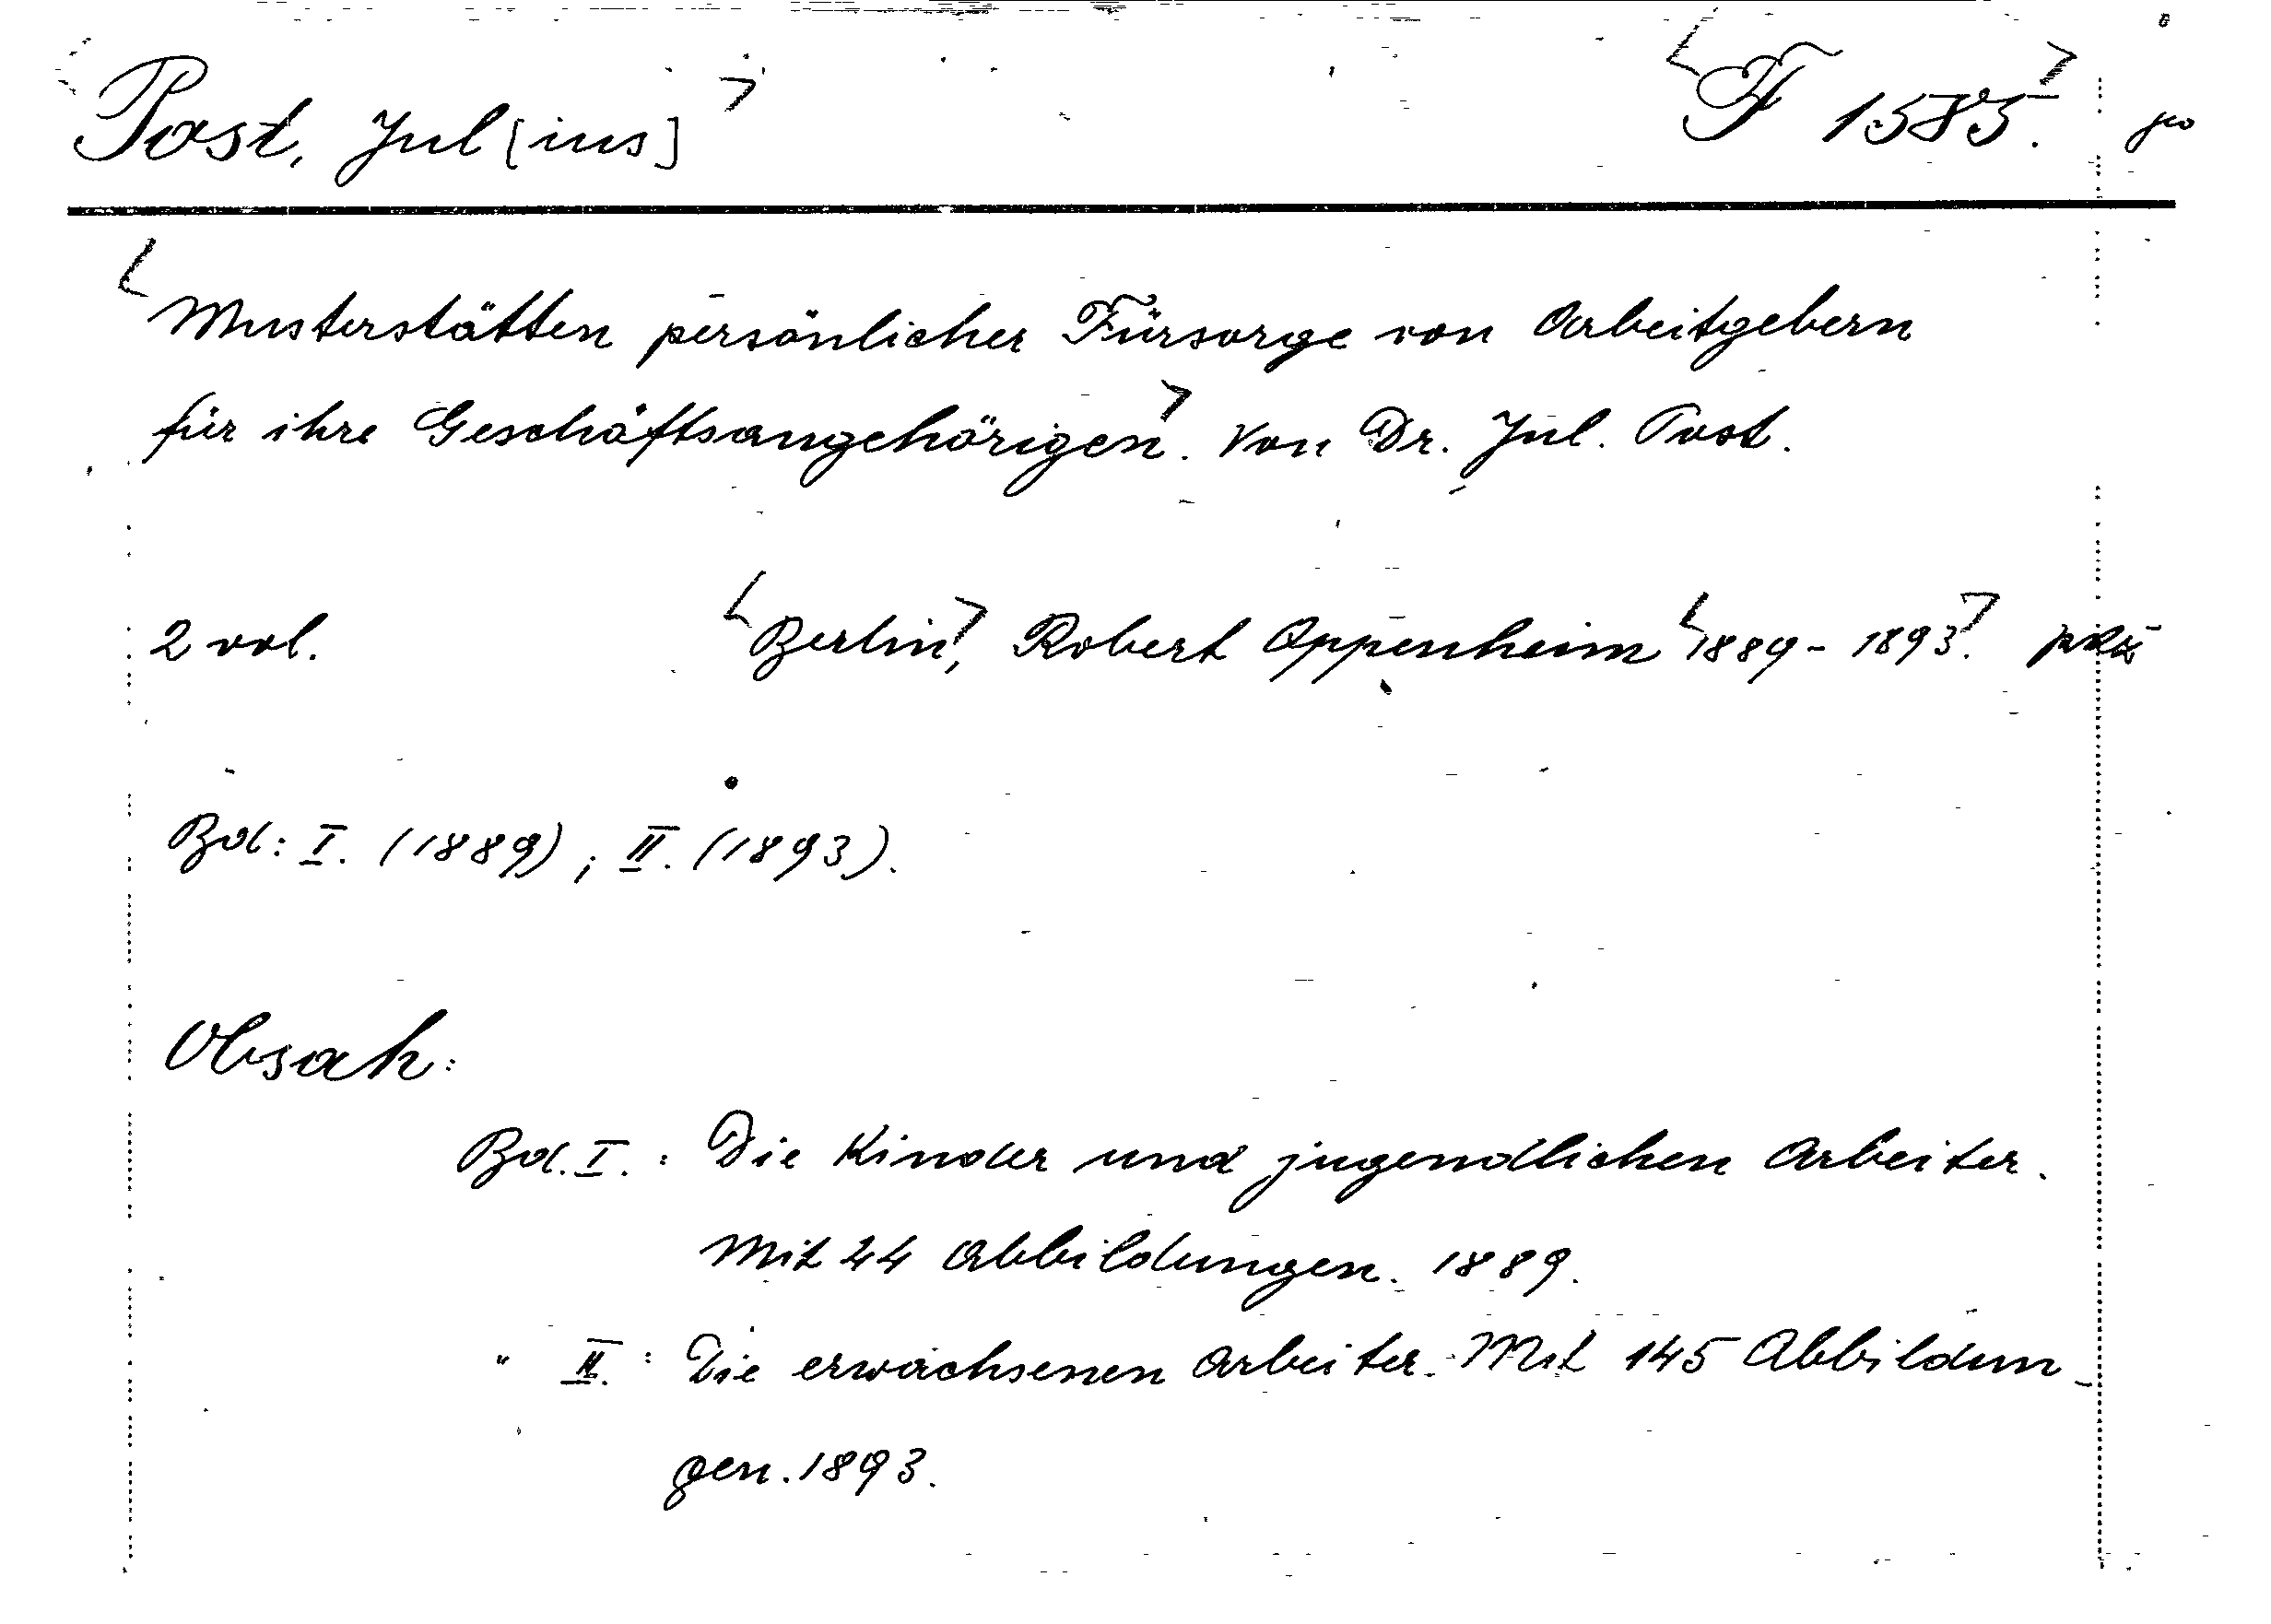 Post, Jul[ius] F 1585.
Musterstätten persönlicher Fürsorge von Arbeitgebern
für ihre Geschäftsangehörigen. Von Dr. Jul. Post.
2 vol. Berlin, Robert Oppenheim 1889-1893.
Bd: I. (1889); II. (1893).
Obsah:
Bd. I.: Die Kinder und jugendlichen Arbeiter.
Mit 24 Abbildungen. 1889.
" II.: Die erwachsenen Arbeiter. Mit 145 Abbildun-
gen. 1893.